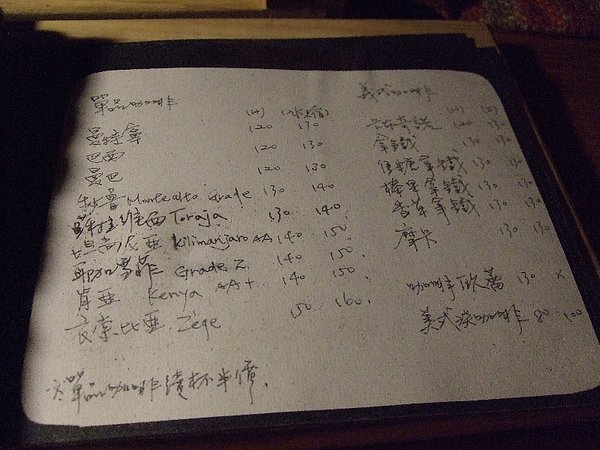 單品咖啡 (H) (冰/溫)
曼特寧 120 130
巴西 120 130
曼巴 120 130
祕魯 Montealto Grade 130 140
蘇拉維西 Toraja 130 140
坦尚尼亞 Kilimanjaro AA 140 150
耶加雪菲 Grade 2. 140 150
肯亞 Kenya AA+ 140 150
衣索比亞 Zege 150 160
※單品咖啡續杯半價.
義式咖啡 (H) (冰)
卡布奇諾 120 130
拿鐵 130 130
焦糖拿鐵 130 130
榛果拿鐵 130 130
香草拿鐵 130 130
摩卡 130 130
咖啡歐蕾 130 ×
美式淡咖啡 80 100